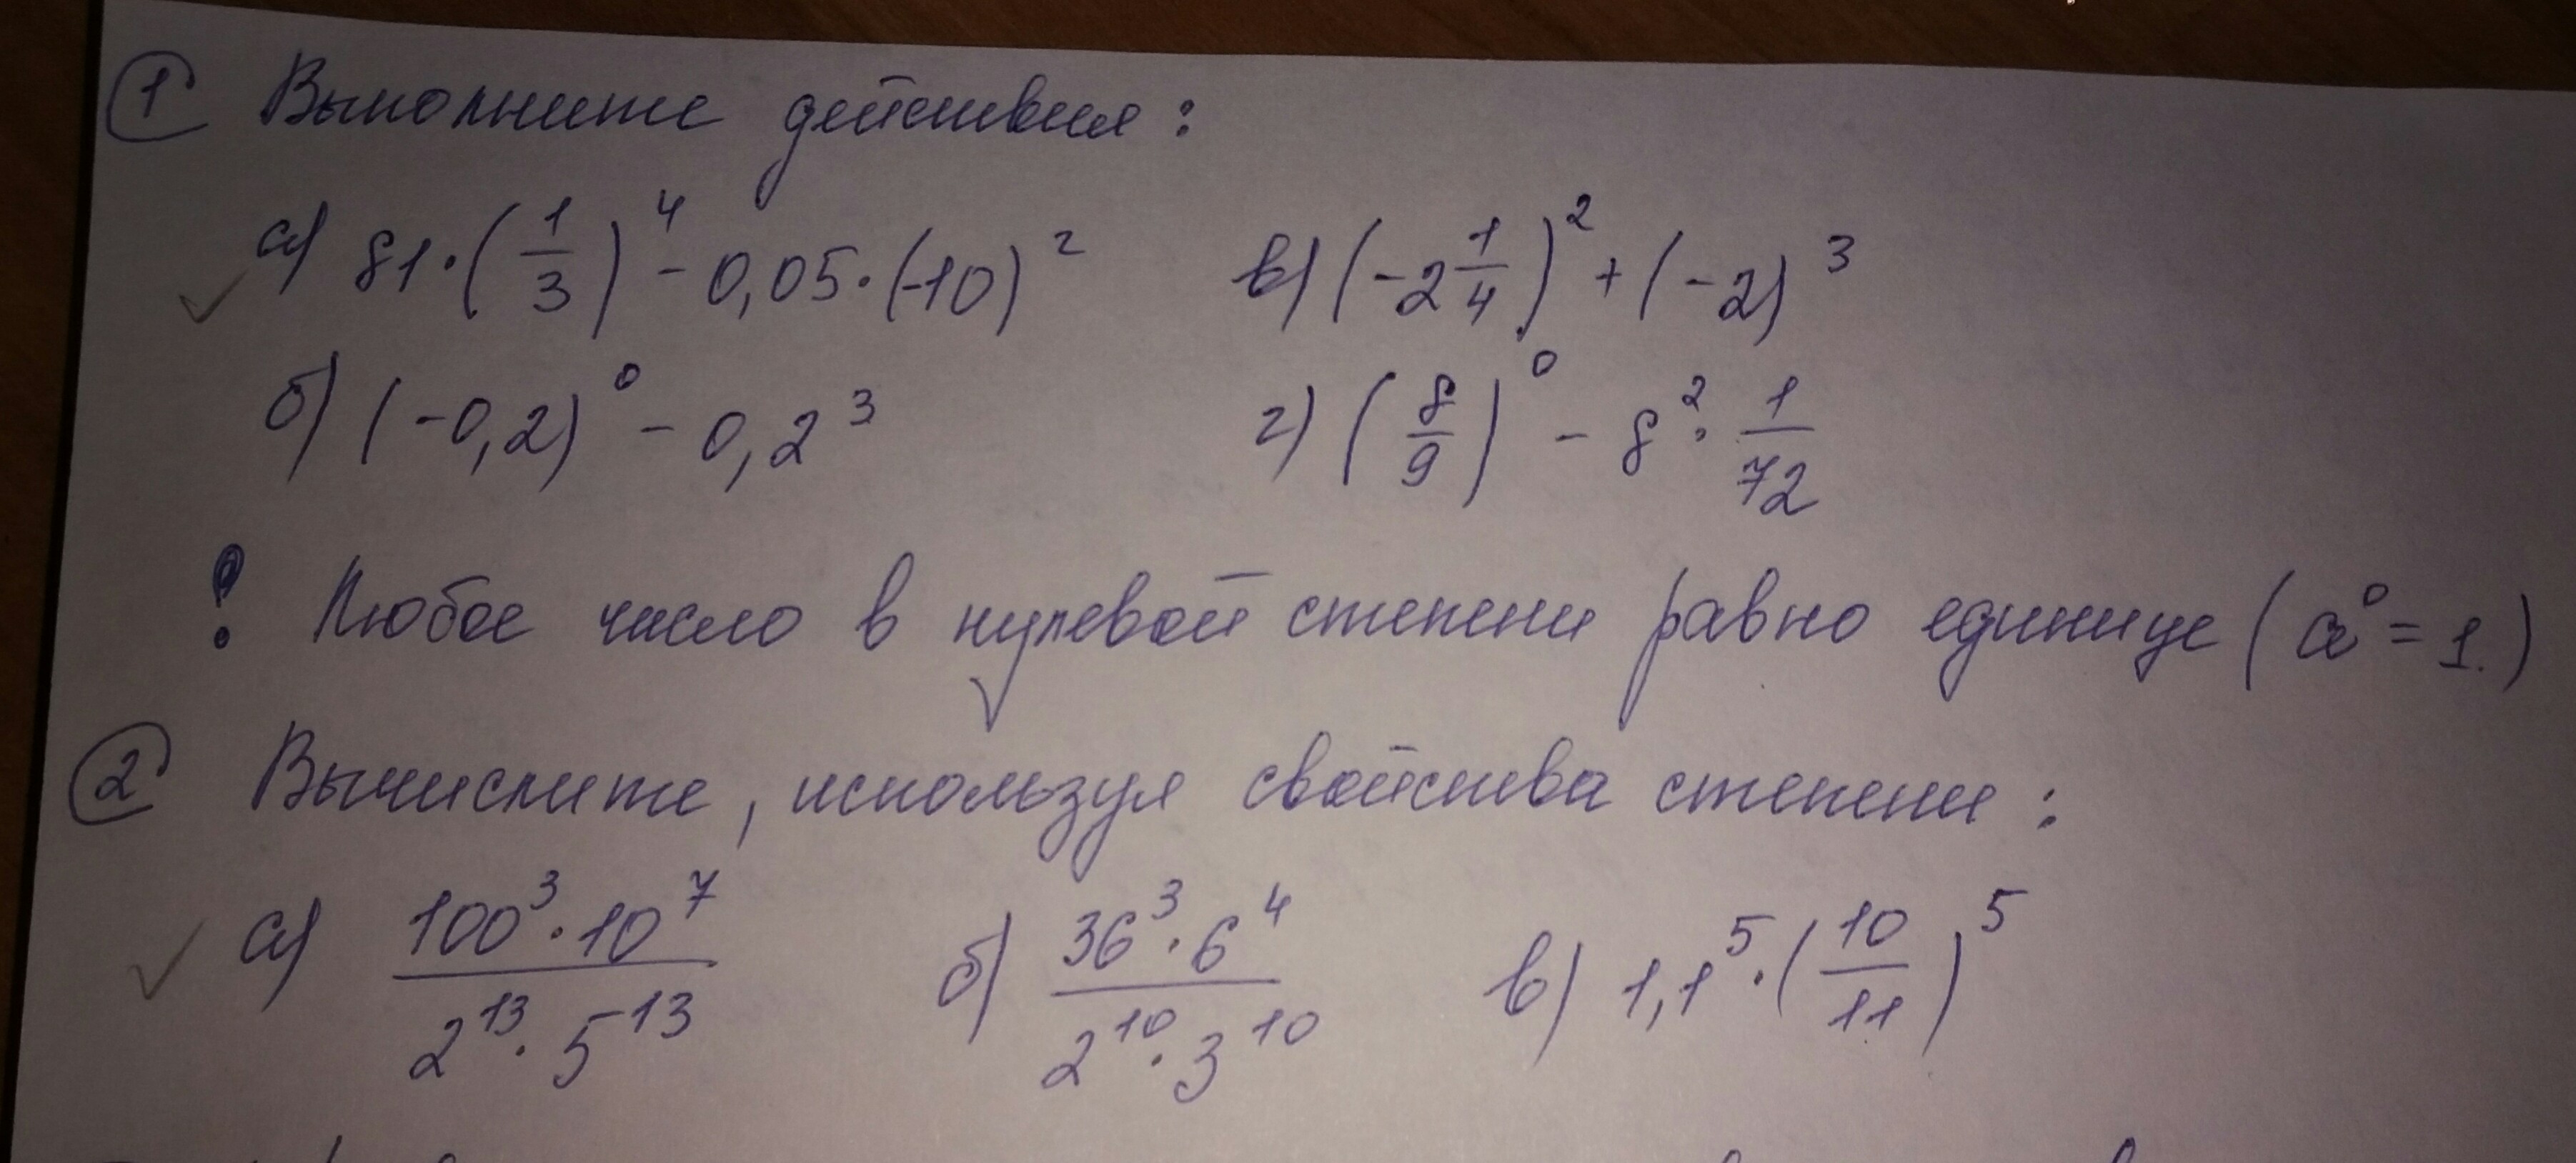 1 Выполните действия:
а) 81·(1/3)^4 - 0,05·(-10)^2 в) (-2 1/4)^2 + (-2)^3
б) (-0,2)^0 - 0,2^3 г) (8/9)^0 - 8^2 · 1/72
! Любое число в нулевой степени равно единице (a^0 = 1.)
2 Вычислите, используя свойства степени:
а) 100^3·10^7 / 2^13·5^13 б) 36^3·6^4 / 2^10·3^10 в) 1,1^5·(10/11)^5